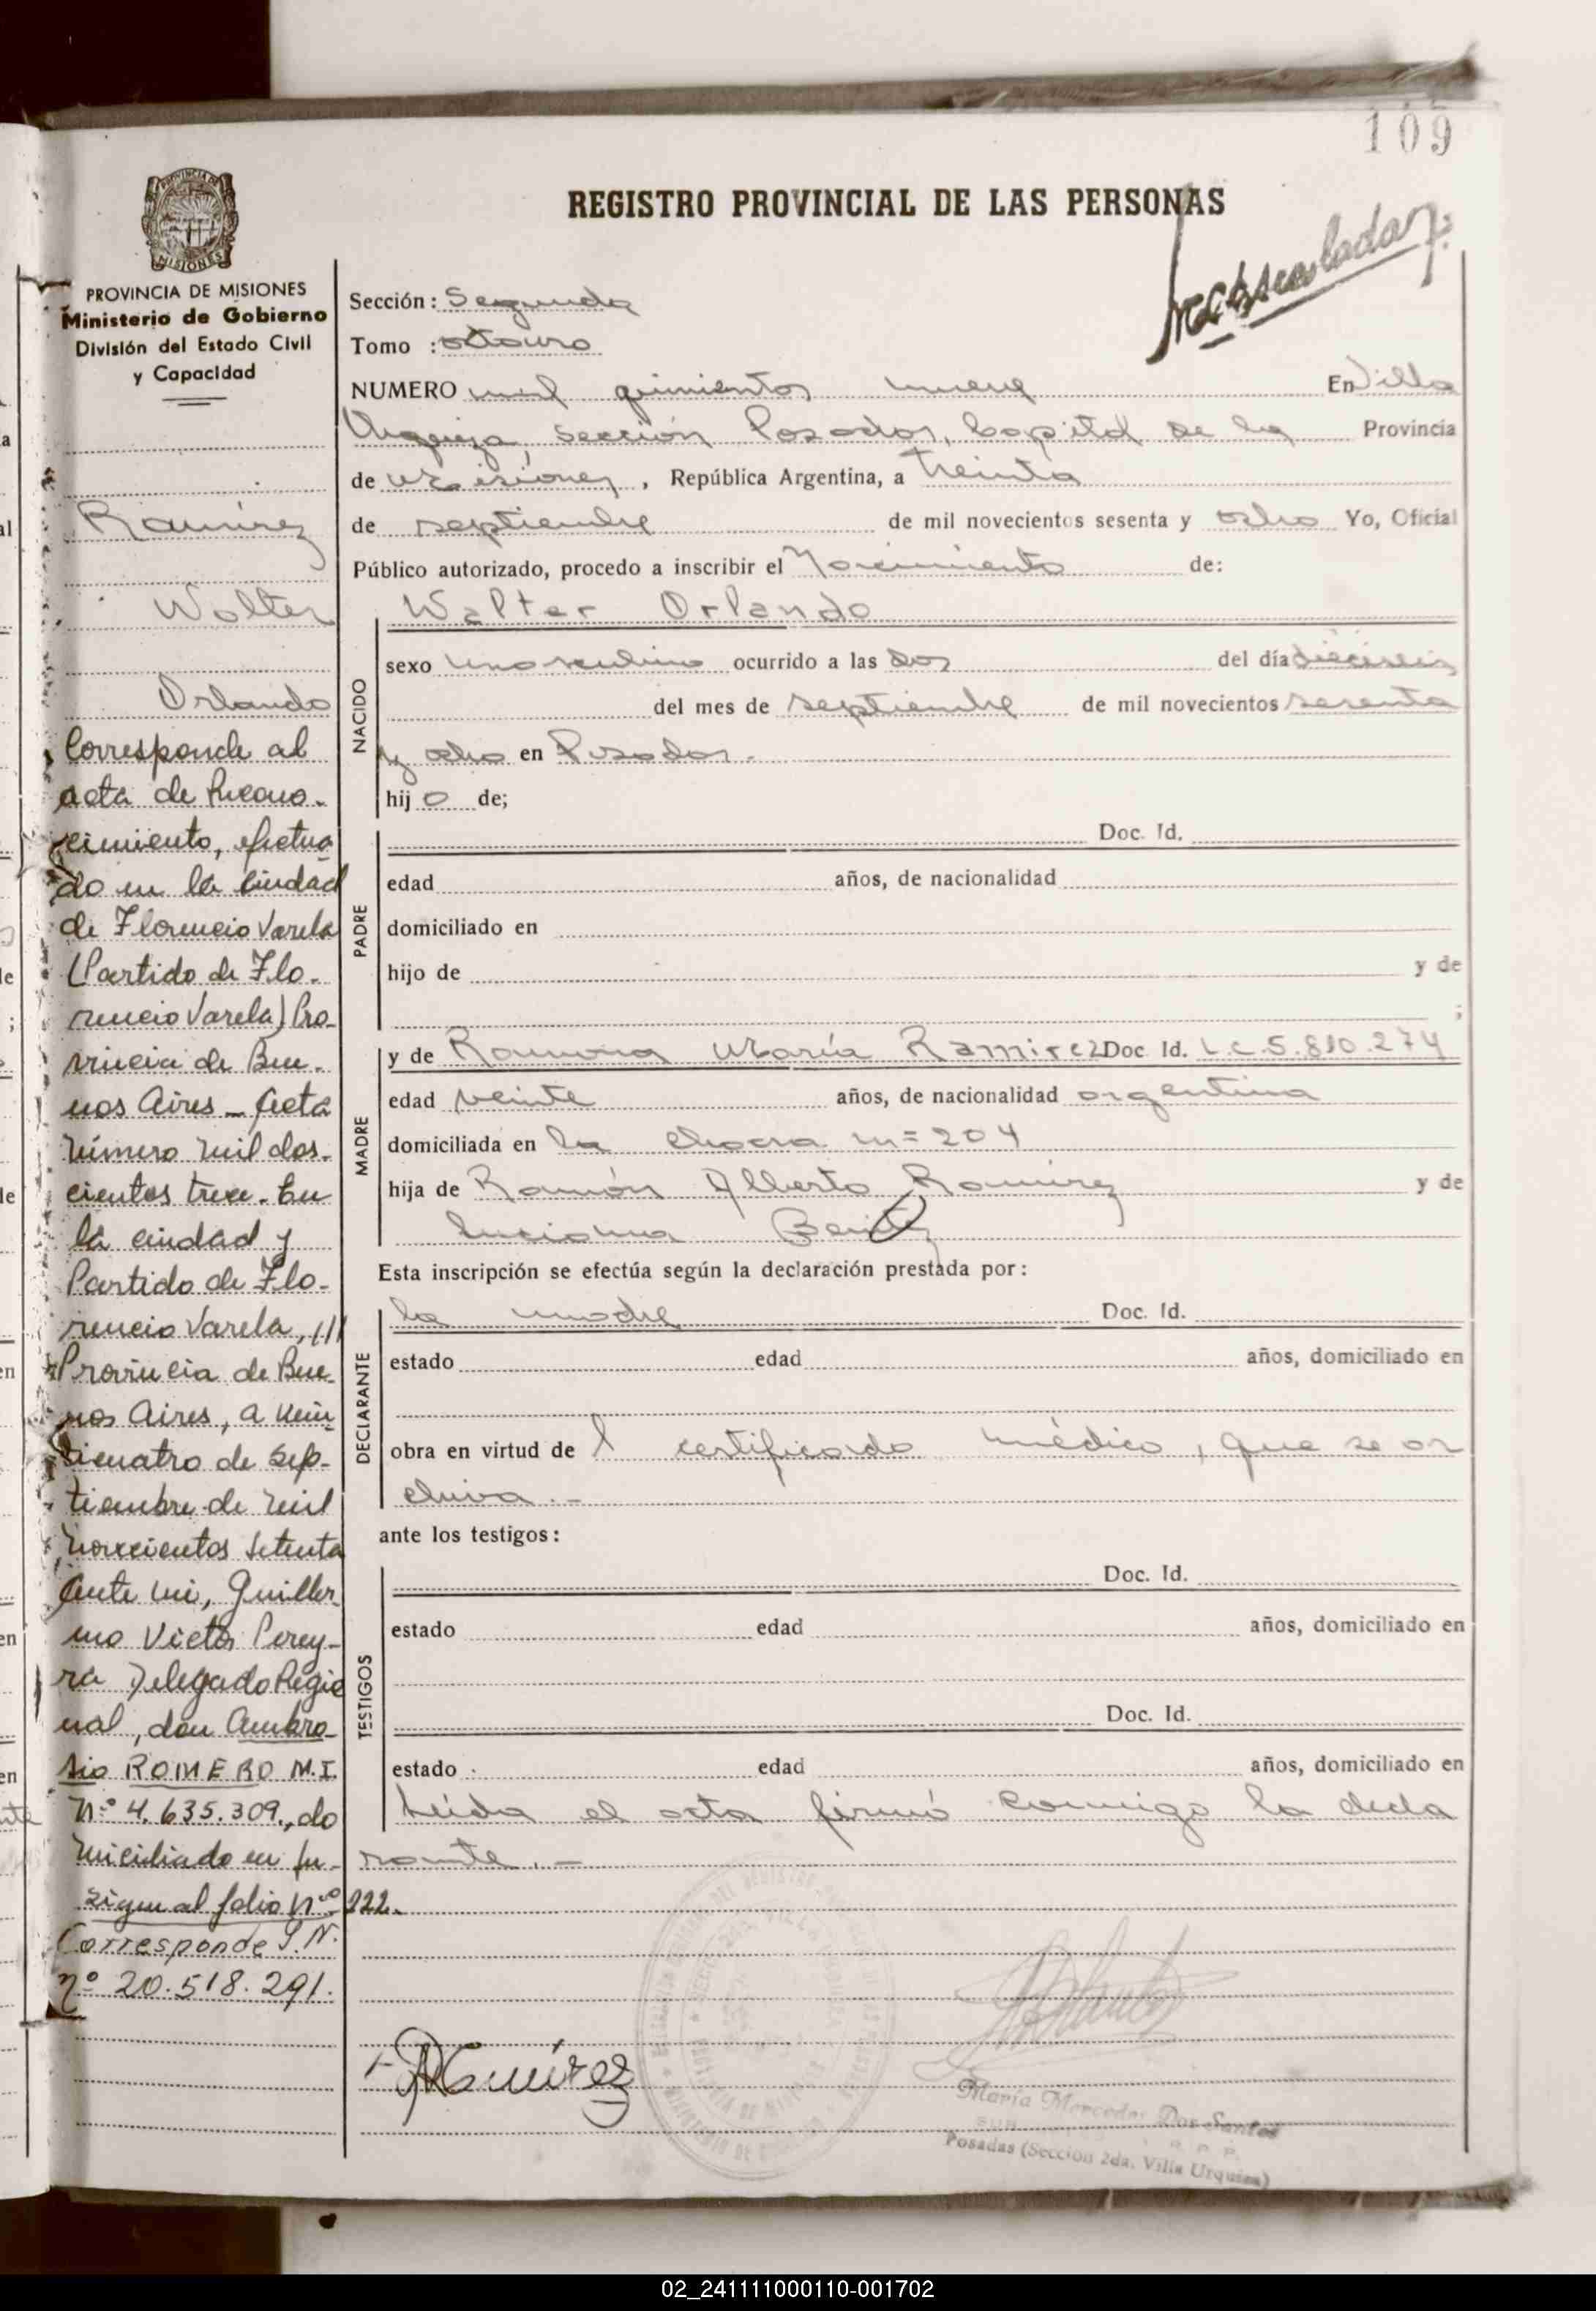 109
REGISTRO PROVINCIAL DE LAS PERSONAS
PROVINCIA DE MISIONES
Ministerio de Gobierno
División del Estado Civil
y Capacidad
Ramírez
Walter
Orlando
Corresponde al
acta de Recono-
cimiento, efectua
do en la ciudad
de Florencio Varela
(Partido de Flo-
rencio Varela) Pro-
vincia de Bue-
nos Aires - Acta
número mil dos-
cientos trece. En
la ciudad y
Partido de Flo-
rencio Varela, ///
Provincia de Bue-
nos Aires, a vein
ticuatro de sep-
tiembre de mil
novecientos setenta
ante mi, Guiller-
mo Victor Perey-
ra Delegado Regio
nal, don Ambro-
sio ROMERO M.I.
Nº 4.635.309., do
miciliado en
sigue al folio Nº 222.
Corresponde
nº 20.518.291.
Sección: Segunda
Tomo : octavo
NUMERO mil quinientos nueve En Villa
Urquiza, Sección Posadas, Capital de la Provincia
de Misiones, República Argentina, a treinta
de septiembre de mil novecientos sesenta y ocho Yo, Oficial
Público autorizado, procedo a inscribir el Nacimiento de:
NACIDO
Walter Orlando
sexo masculino ocurrido a las dos del día dieciseis
del mes de septiembre de mil novecientos sesenta
y ocho en Posadas.
hijo de;
PADRE
Doc. Id.
edad años, de nacionalidad
domiciliado en
hijo de y de
;
MADRE
y de Ramona María Ramirez Doc. Id. L.C. 5.810.274
edad veinte años, de nacionalidad argentina
domiciliada en la chacra n= 204
hija de Ramón Alberto Ramirez y de
Luciana Benitez
Esta inscripción se efectúa según la declaración prestada por:
DECLARANTE
la madre Doc. Id.
estado edad años, domiciliado en
obra en virtud del certificado médico, que se ar
chiva.-
ante los testigos:
TESTIGOS
Doc. Id.
estado edad años, domiciliado en
Doc. Id.
estado edad años, domiciliado en
Leída el acta firmó conmigo la decla
rante.-
Ramírez
María Mercedes Dos Santos
Posadas (Sección 2da. Villa Urquiza)
02_241111000110-001702